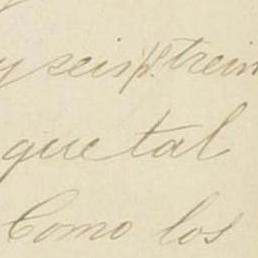 y seis ps. trein
que tal
Como los